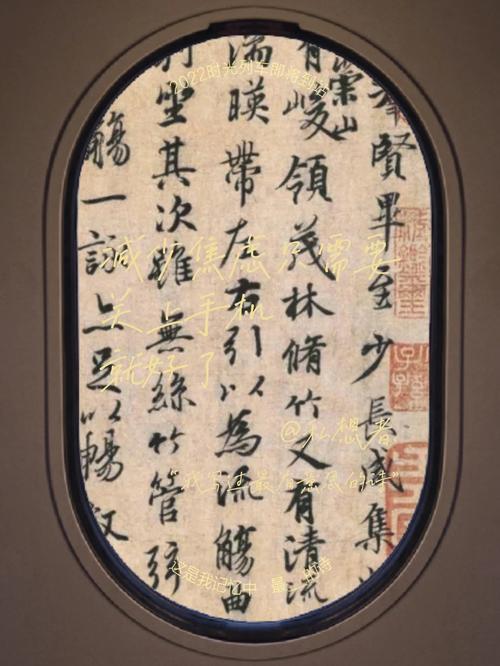 2022时光列车即将到站
羣賢畢至少長咸集
有崇山峻領茂林脩竹又有清流
湍暎帶左右引以為流觴曲
列坐其次雖無絲竹管弦
觴一詠亦足以暢叙
减少焦虑只需要
关上手机
就好了
@私想者
“我写过最有的诗”
这是我记忆中 最的诗